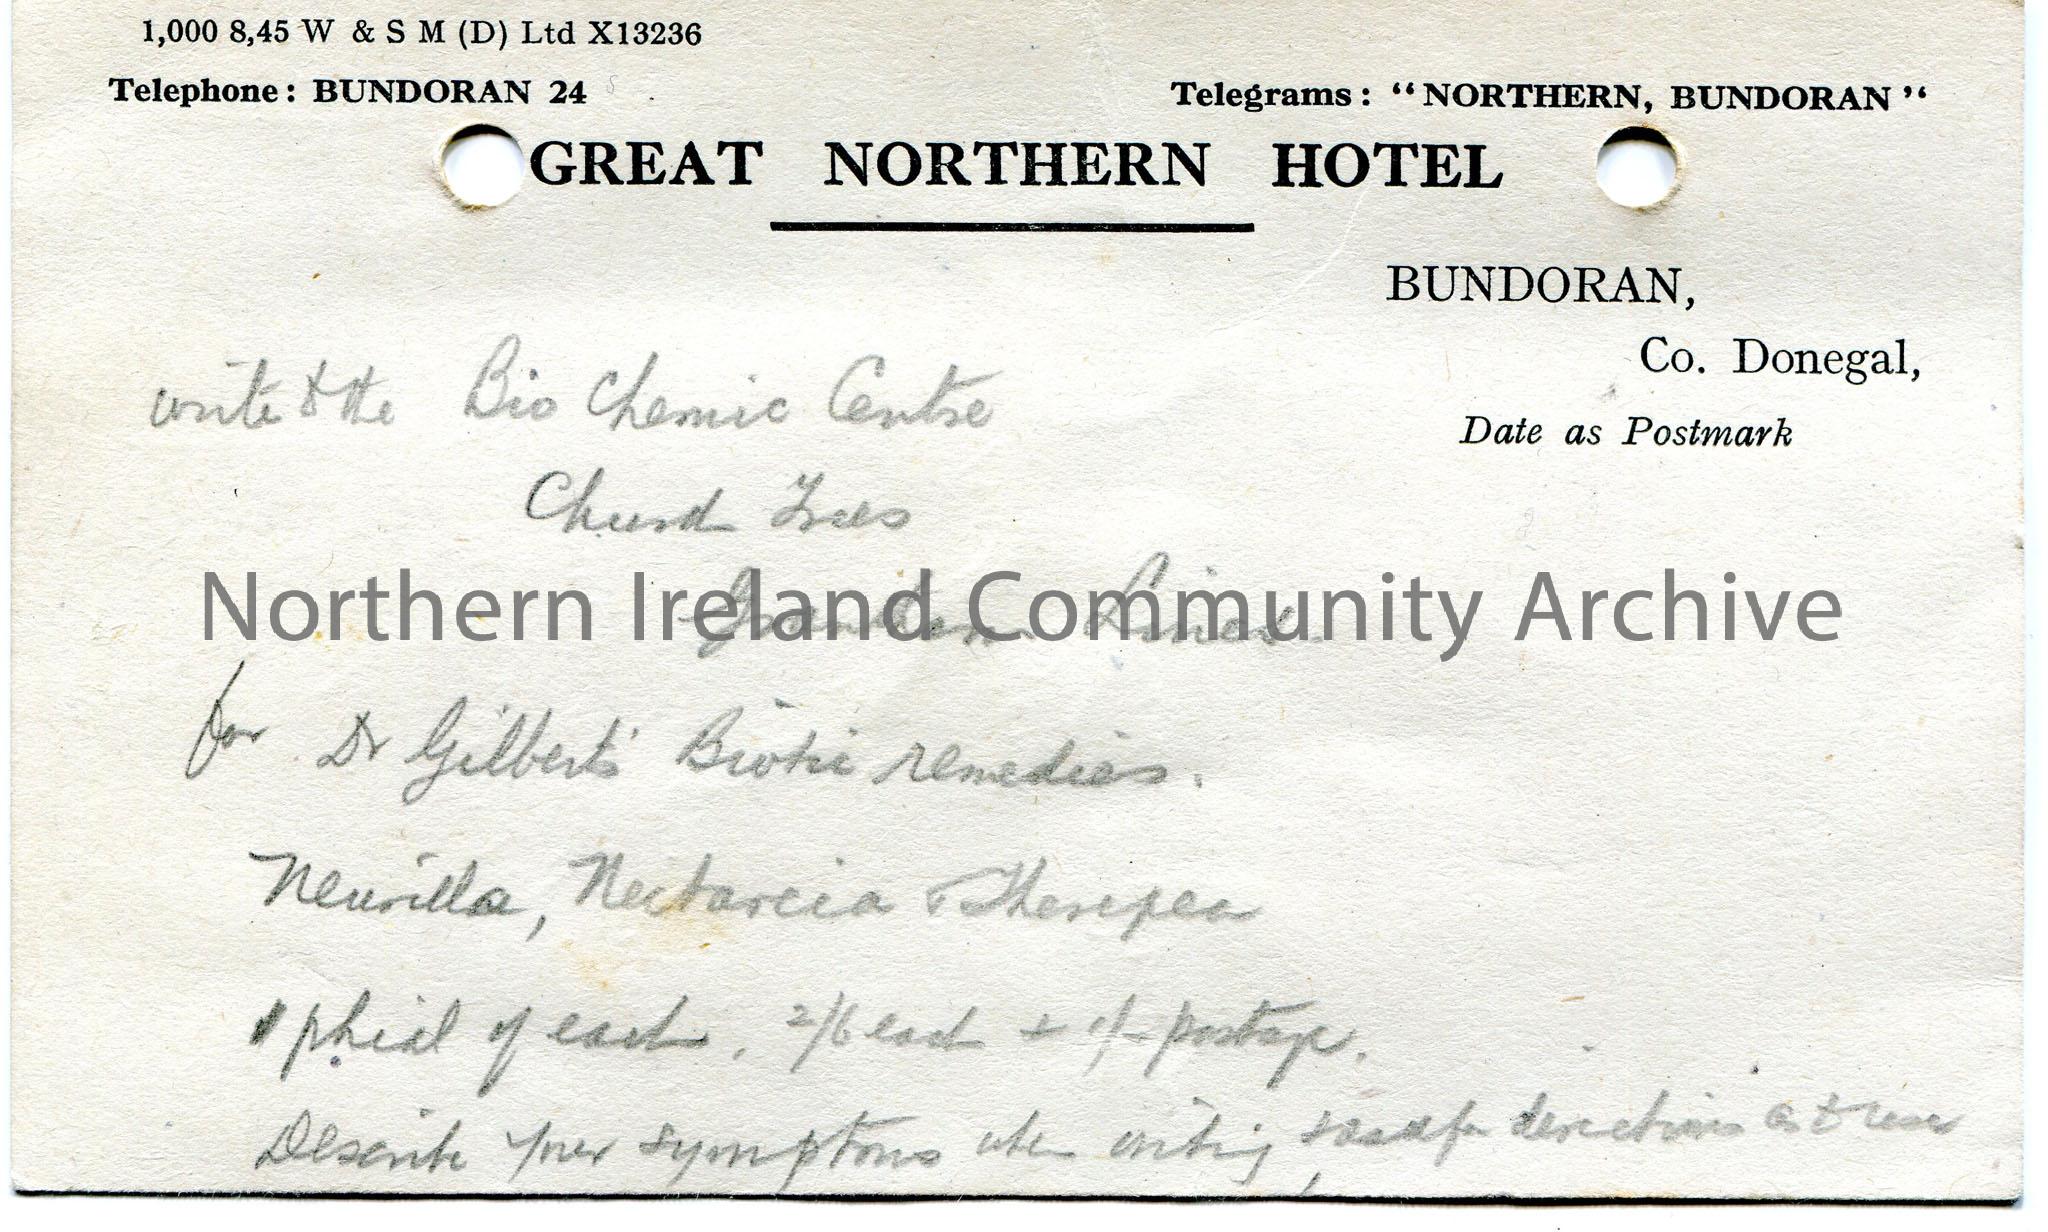 1,000 8,45 W & S M (D) Ltd X13236
Telephone: BUNDORAN 24
Telegrams: "NORTHERN, BUNDORAN"
GREAT NORTHERN HOTEL
BUNDORAN,
Co. Donegal,
Date as Postmark
write to the Bio Chemic Centre
Church Trees
Grantham Lincs.
Northern Ireland Community Archive
for Dr Gilbert's Biotic remedies.
Neurilla, Nectarcia & Therepea
1 phial of each, 2/6 each + 1/- postage.
Describe your symptoms when writing & ask for directions as to use